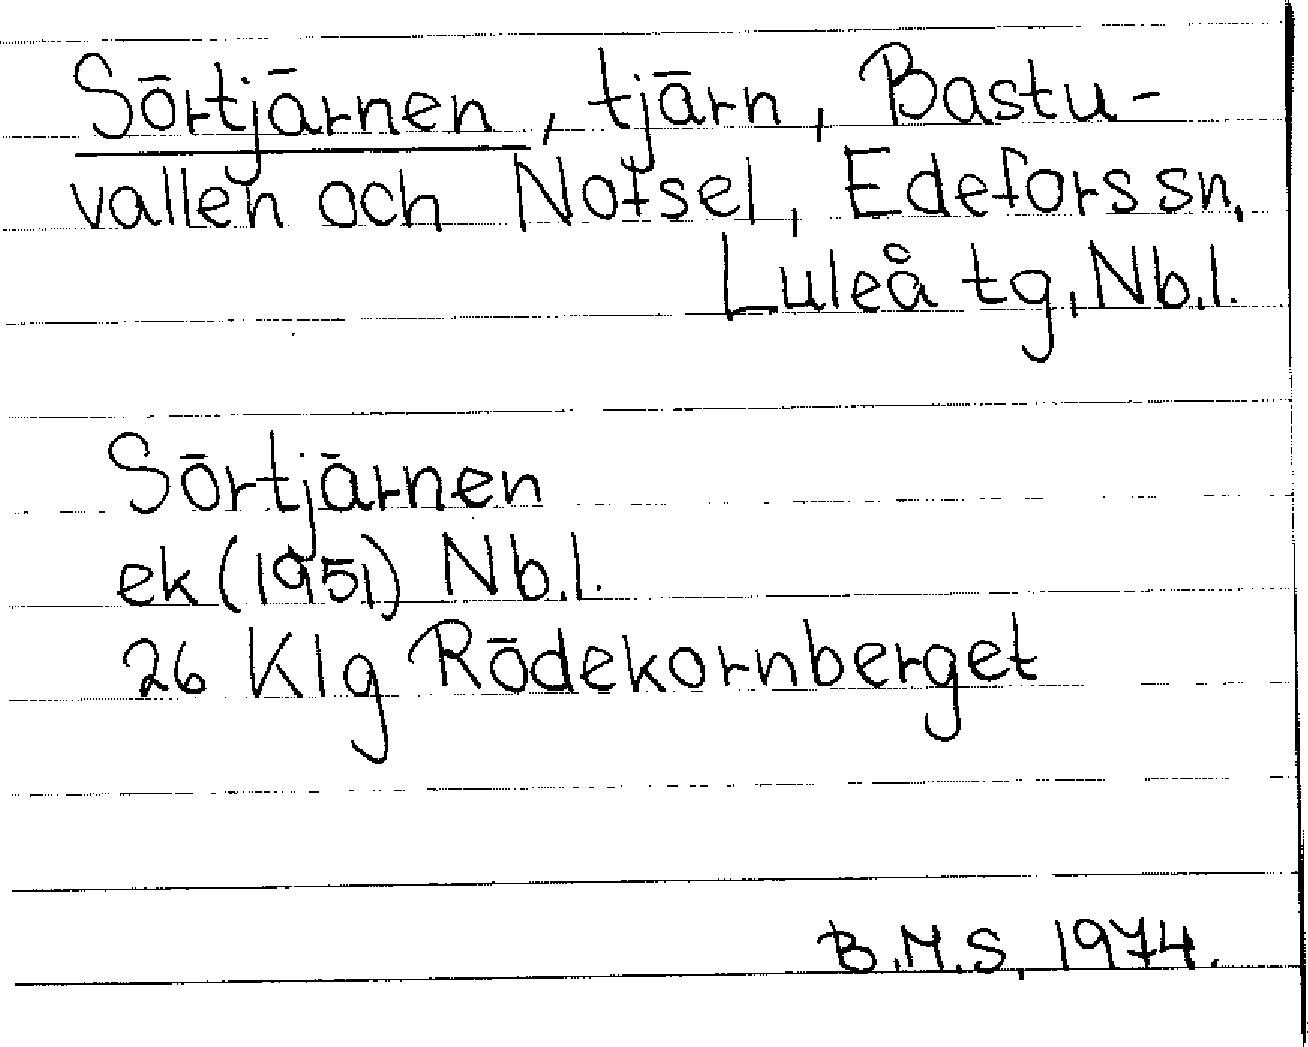 Sörtjärnen, tjärn, Bastu-
vallen och Notsel, Edefors sn,
Luleå tg, Nb.l.
Sörtjärnen
ek (1951) Nb.l.
26 Klg Rödekornberget
B.M.S. 1974.